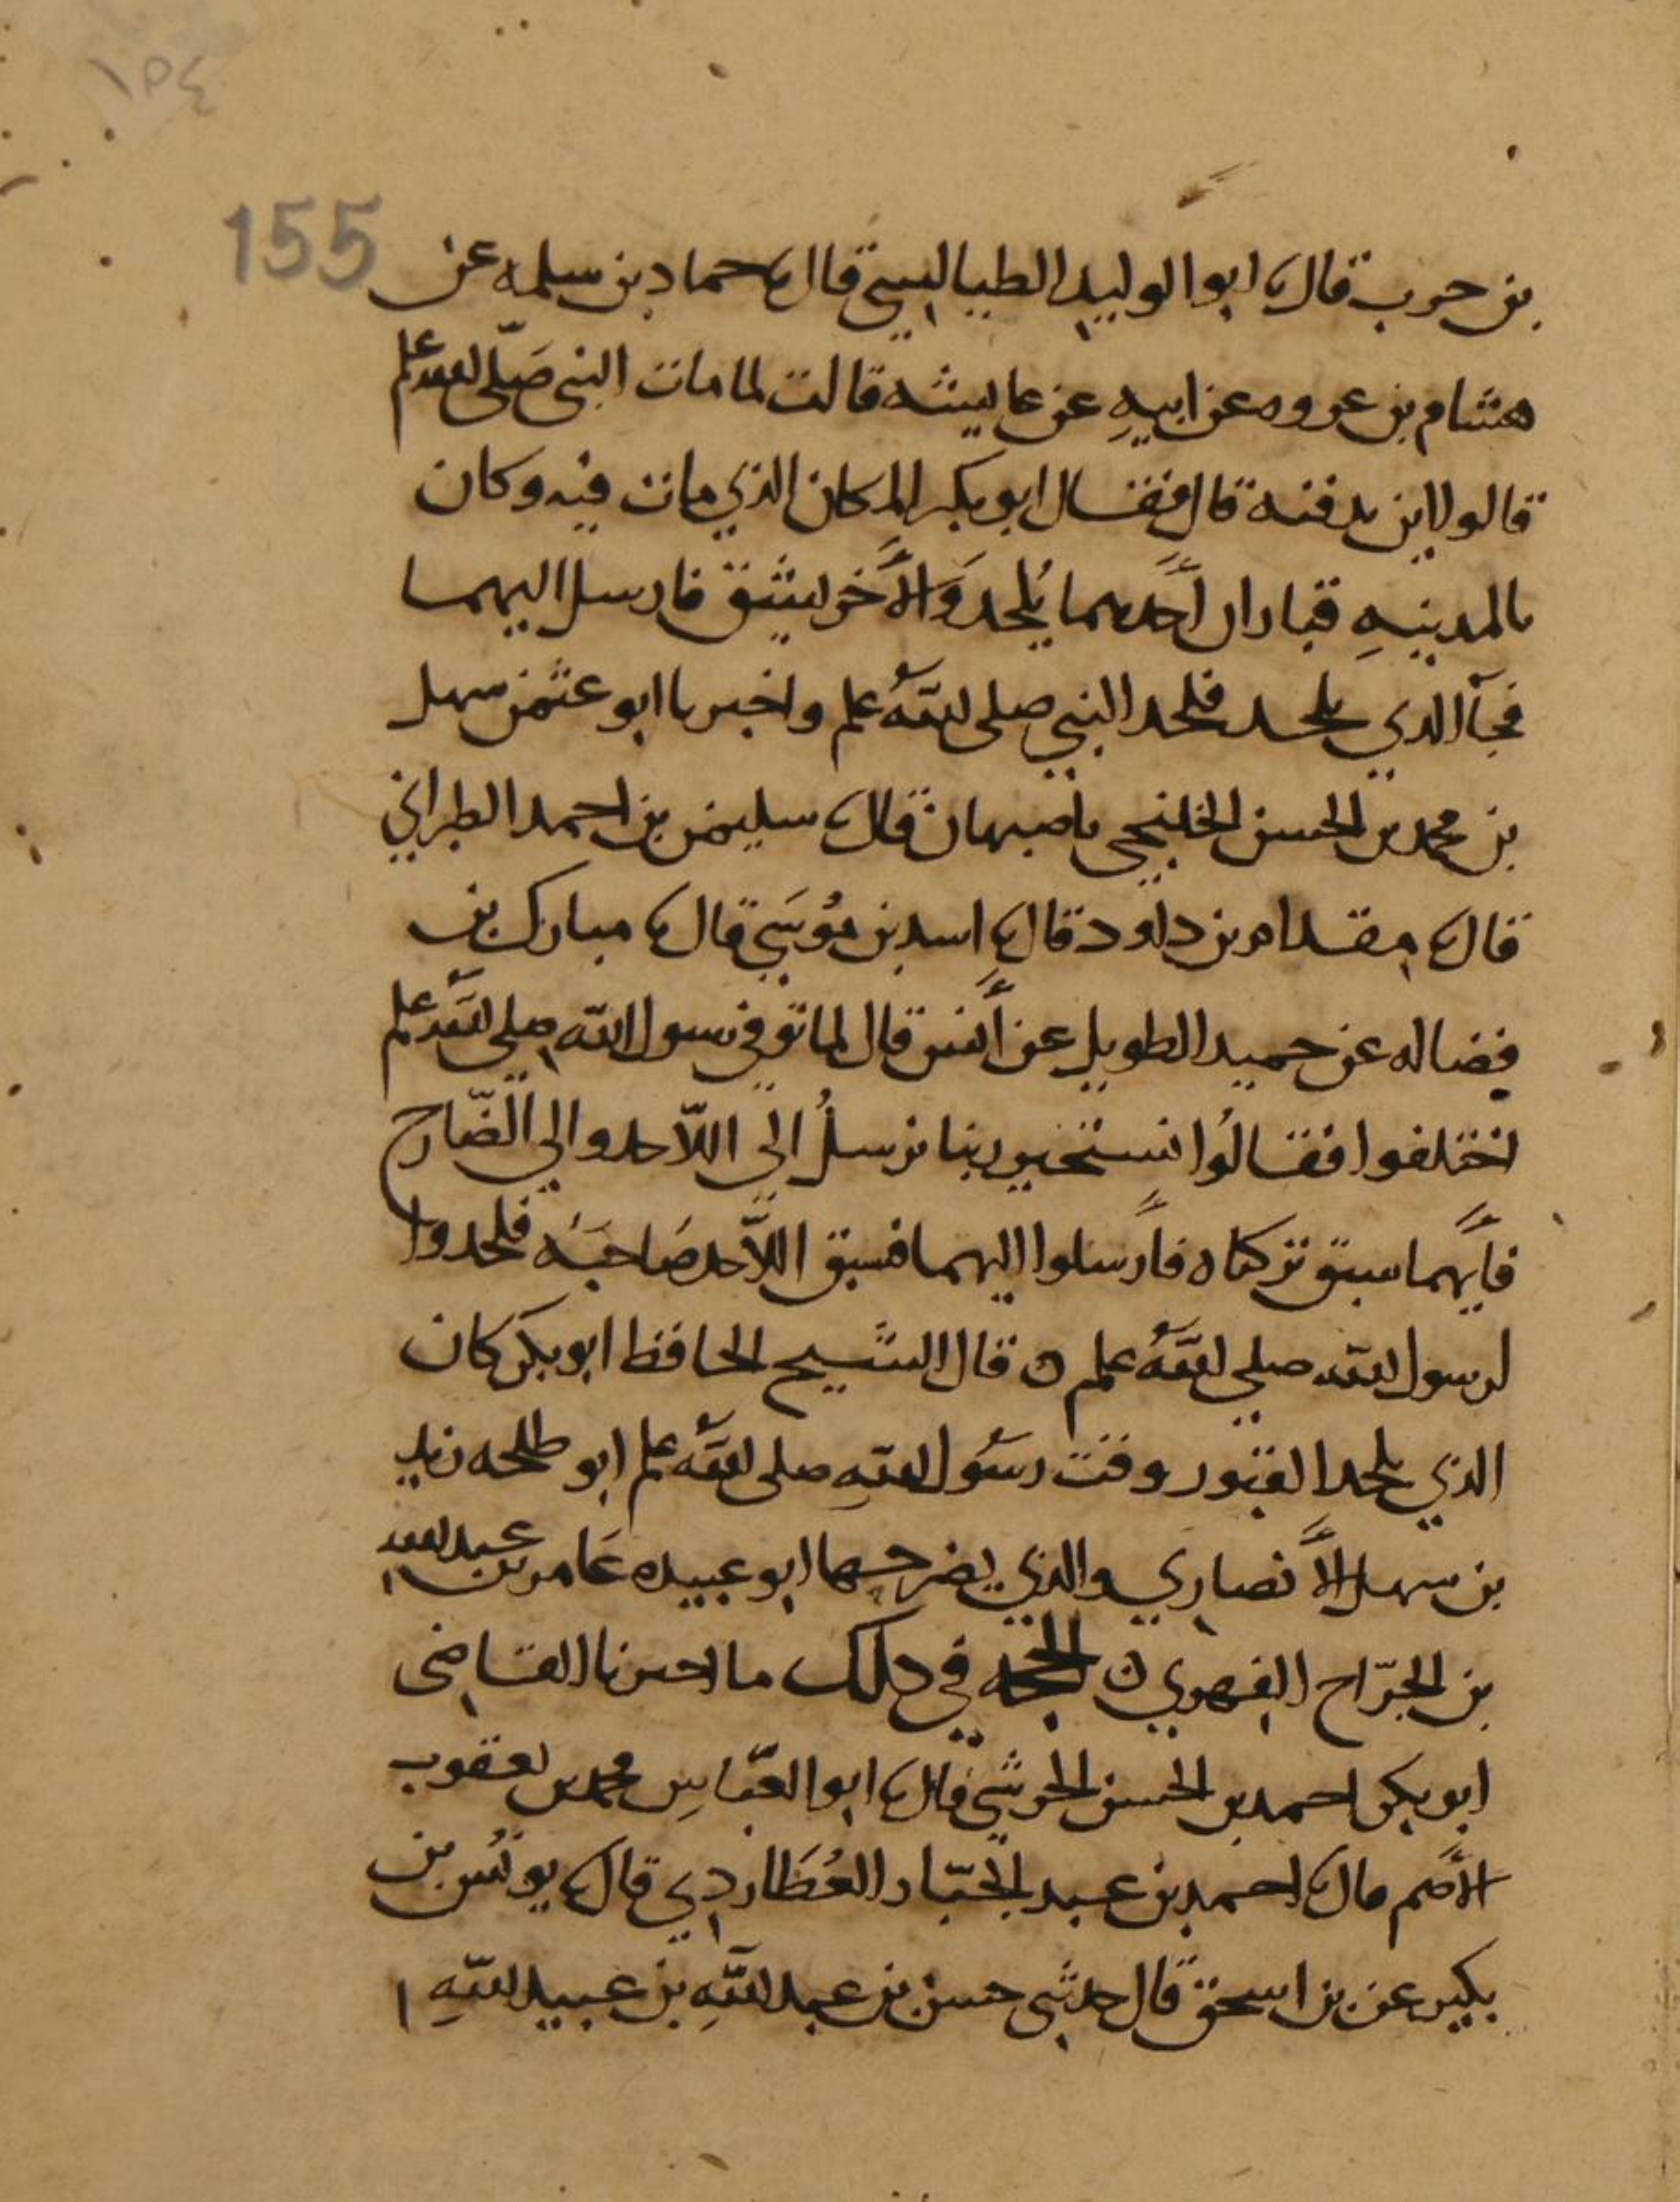 ١٥٤
155
بن حرب قال نا ابو الوليد الطيالسي قال نا حماد بن سلمه عن
هشام بن عروه عن ابيهِ عن عايشه قالت لما مات النبي صَلّى الله علم
قالوا اين ندفنه قال فقال ابو بكر المكان الذي مات فيه وكان
بالمدينهِ قباران أحدهما يُلحد وَالأخر يشق فارسل اليهما
فجآ الذي يلحد فلحد النبي صلى اللهُ علم واخبرنا ابو عثمن سهل
بن محمد بن الحسن الخلنجي باصبهان قال نا سليمن بن احمد الطبراني
قال نا مقدام بن داود قال نا اسد بن مُوسَي قال نا مبارك بن
فضاله عن حميد الطويل عن أنس قال لما توفي رسول الله صلي الله علم
اختلفوا فقالُوا نستخير ربنا نرسلُ الي اللّاحد والي الضّارح
فأيهما سبق تركناه فأرسلوا اليهما فسبق اللّاحد صَاحبَه فلحدوا
لرسول الله صلي اللهُ علم ه قال الشيح الحافظ ابو بكر كان
الذي يلحد القبور وقت رسُول اللهِ صلى اللهُ علم ابو طلحه زيد
بن سهل الأنصاري والذي يضرحها ابو عبيده عَامر بن عبد الله
بن الجرّاح الفهري ه الحجه في ذلك ما اخبرنا القاضى
ابو بكر احمد بن الحسن الحرشي قال نا ابو العبّاسِ محمد بن يعقوب
الأصم قال نا احمد بن عبد الجبّار العُطَاردي قال نا يونُس بن
بكير عن بن اسحق قال حدثني حسن بن عبد اللهِ بن عبيد اللهِ ا